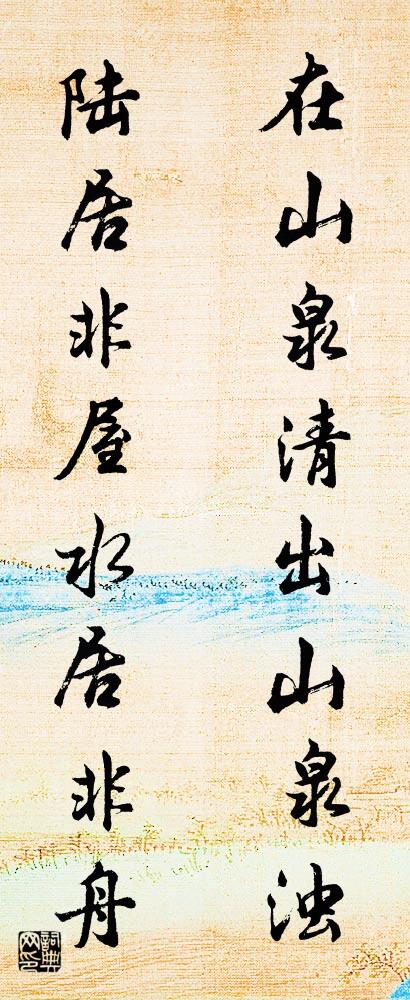 在山泉清出山泉浊
陆居非屋水居非舟